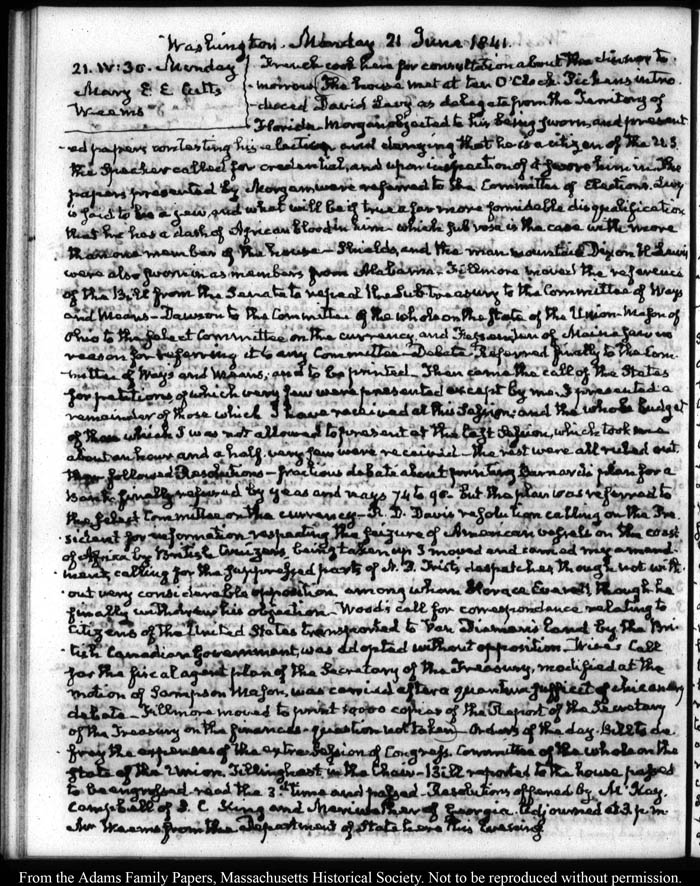 Washington. Monday 21 June 1841.
21. IV:30. Monday
Mary E E Cutts
Weems
French cook here for consultation about the dinner to-
morrow. The house met at ten O'Clock. Pickens intro-
duced David Levy as delegate from the Territory of
Florida. Morgan objected to his being sworn, and present
ed papers contesting his election and denying that he is a citizen of the U.S.
the Speaker called for credentials, and upon inspection of it swore him in. The
papers presented by Morgan were referred to the Committee of Elections. Levy
is said to be a jew, and what will be if true a far more formidable disqualification
that he has a dash of African blood in him which sub rosa is the case with more
than one member of the house — Shields, and the man mountain Dixon H Lewis
were also sworn in as members from Alabama. Fillmore moved the reference
of the Bill from the Senate to repeal the Sub-treasury to the Committee of Ways
and Means — Dawson to the Committee of the whole on the State of the Union. Mason of
Ohio to the select Committee on the currency, and Fessenden of Maine saw no
reason for referring it to any Committee — Debate. Referred finally to the Com-
mittee of Ways and Means, and to be printed. Then came the call of the States
for petitions of which very few were presented except by me. I presented a
remainder of those which I have received at this Session; and the whole budget
of those which I was not allowed to present at the last Session, which took me
about an hour and a half. very few were received — the rest were all ruled out.
then followed Resolutions — fractious debate about printing Barnard's plan for a
Bank, finally refused by yeas and nays 74 to 90. but the plan was referred to
the select Committee on the currency — R. D. Davis resolution calling on the Pre-
sident for information respecting the seizure of American vessels on the coast
of Africa by British Cruizers, being taken up I moved and carried my amend-
ment, calling for the suppressed parts of N. P. Trist's despatches though not with-
out very considerable opposition, among whom Horace Everett though he
finally withdrew his objection. Wood's call for correspondence relating to
Citizens of the United States transported to Van Dieman's Land by the Bri-
tish Canadian Government, was adopted without opposition. Wise's Call
for the fiscal agent plan of the Secretary of the Treasury, modified at the
motion of Sampson Mason, was carried after a quantum sufficit of chicanery
debate — Fillmore moved to print 10000 copies of the Report of the Secretary
of the Treasury on the finances — question not taken. Orders of the day. Bill to de
fray the expenses of the extra session of Congress. Committee of the whole on the
State of the Union. Tillinghast in the Chair — Bill reported to the house passed
to be engrossed read the 3d time and passed. Resolutions offered by McKay,
Campbell of S. C. King and Meriwether of Georgia. Adjourned at 3 p.m.
Mr Weems from the Department of State here this Evening.
From the Adams Family Papers, Massachusetts Historical Society. Not to be reproduced without permission.